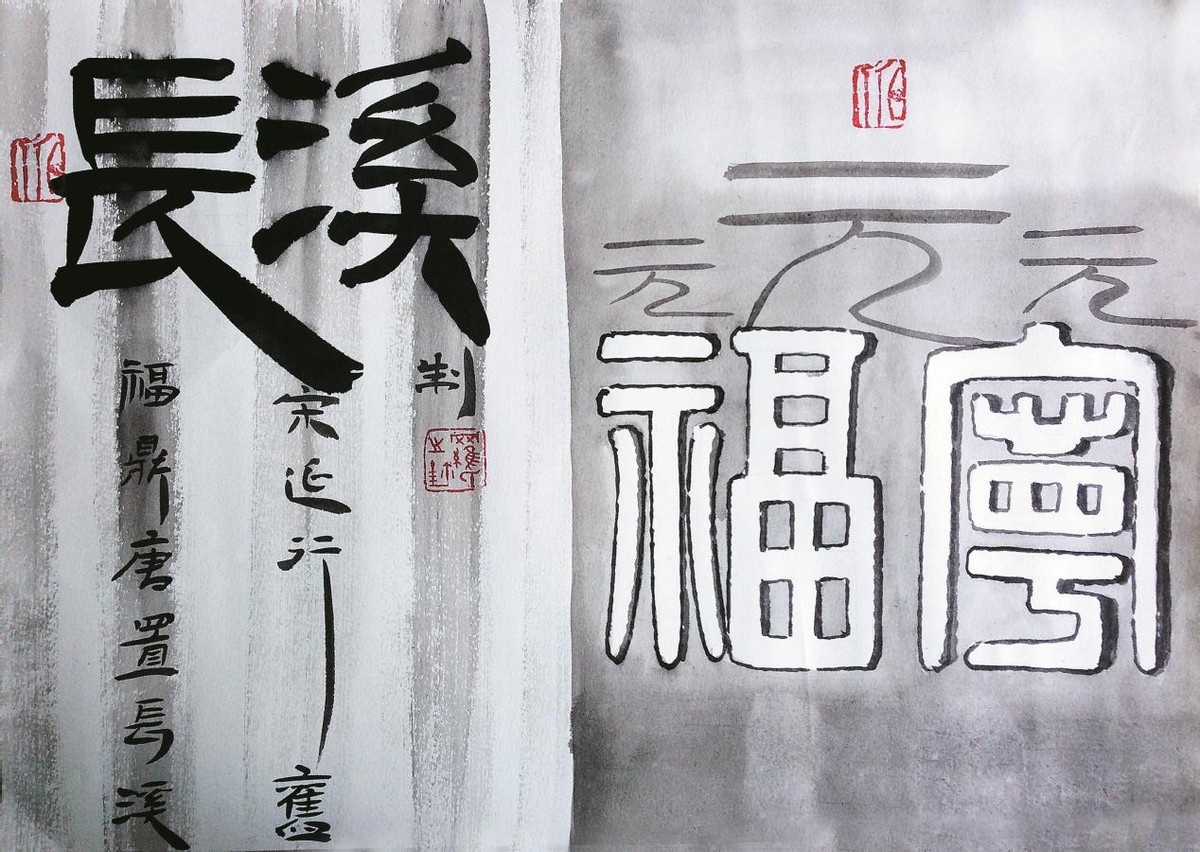 長溪
福鼎唐置長溪
宋延行舊
制
元
元
元
福寧